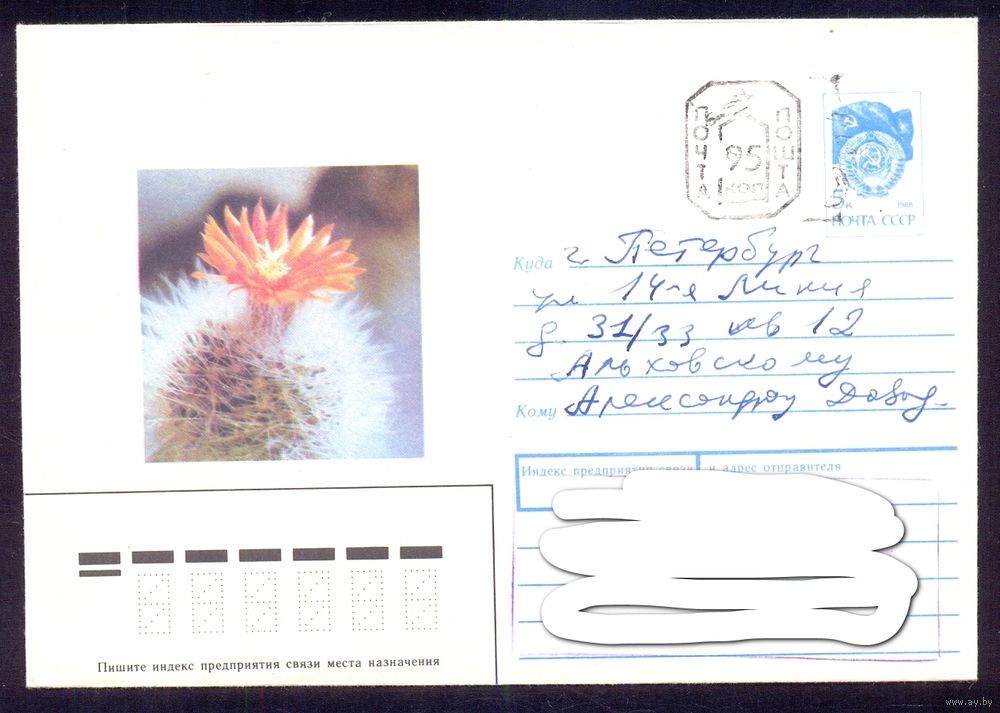 ПОЧТА
95
КОП
ПОШТА
5к
1988
ПОЧТА СССР
Куда г. Петербург
ул 14-я Линия
д. 31/33 кв 12
Альховскому
Кому Александру Давыд.
Индекс предприятия связи и адрес отправителя
Пишите индекс предприятия связи места назначения
www.ay.by